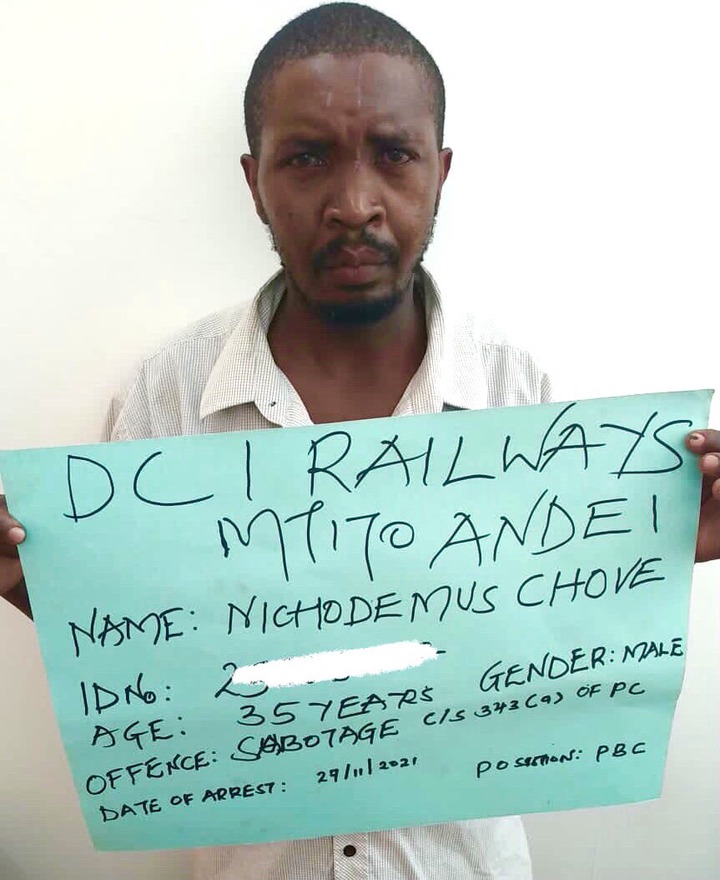 DCI RAILWAYS
MTITO ANDEI
NAME: NICHODEMUS CHOVE
IDNo: 2
AGE: 35 YEARS GENDER: MALE
OFFENCE: SABOTAGE C/S 343(a) OF PC
DATE OF ARREST: 29/11/2021 POSSITION: PBC